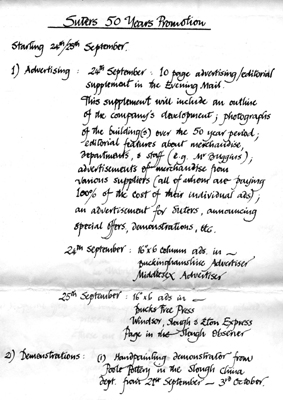 Suters 50 Years Promotion
Starting 24th/25th September.
1) Advertising : 24th September : 10 page advertising/editorial
supplement in the Evening Mail.
This supplement will include an outline
of the company's development; photographs
of the building(s) over the 50 year period;
editorial features about merchandise,
departments, & staff (e.g. Mr Bryans);
advertisements of merchandise from
various suppliers (all of whom are paying
100% of the cost of their individual ads);
an advertisement for Suters, announcing
special offers, demonstrations, etc.
24th September : 16"x6 column ads. in —
Buckinghamshire Advertiser
Middlesex Advertiser
25th September : 16"x6 ads in —
Bucks Free Press
Windsor, Slough & Eton Express
Page in the Slough Observer
2) Demonstrations : (1) Handpainting demonstrator from
Poole Pottery in the Slough China
dept. from 21st September — 3rd October.